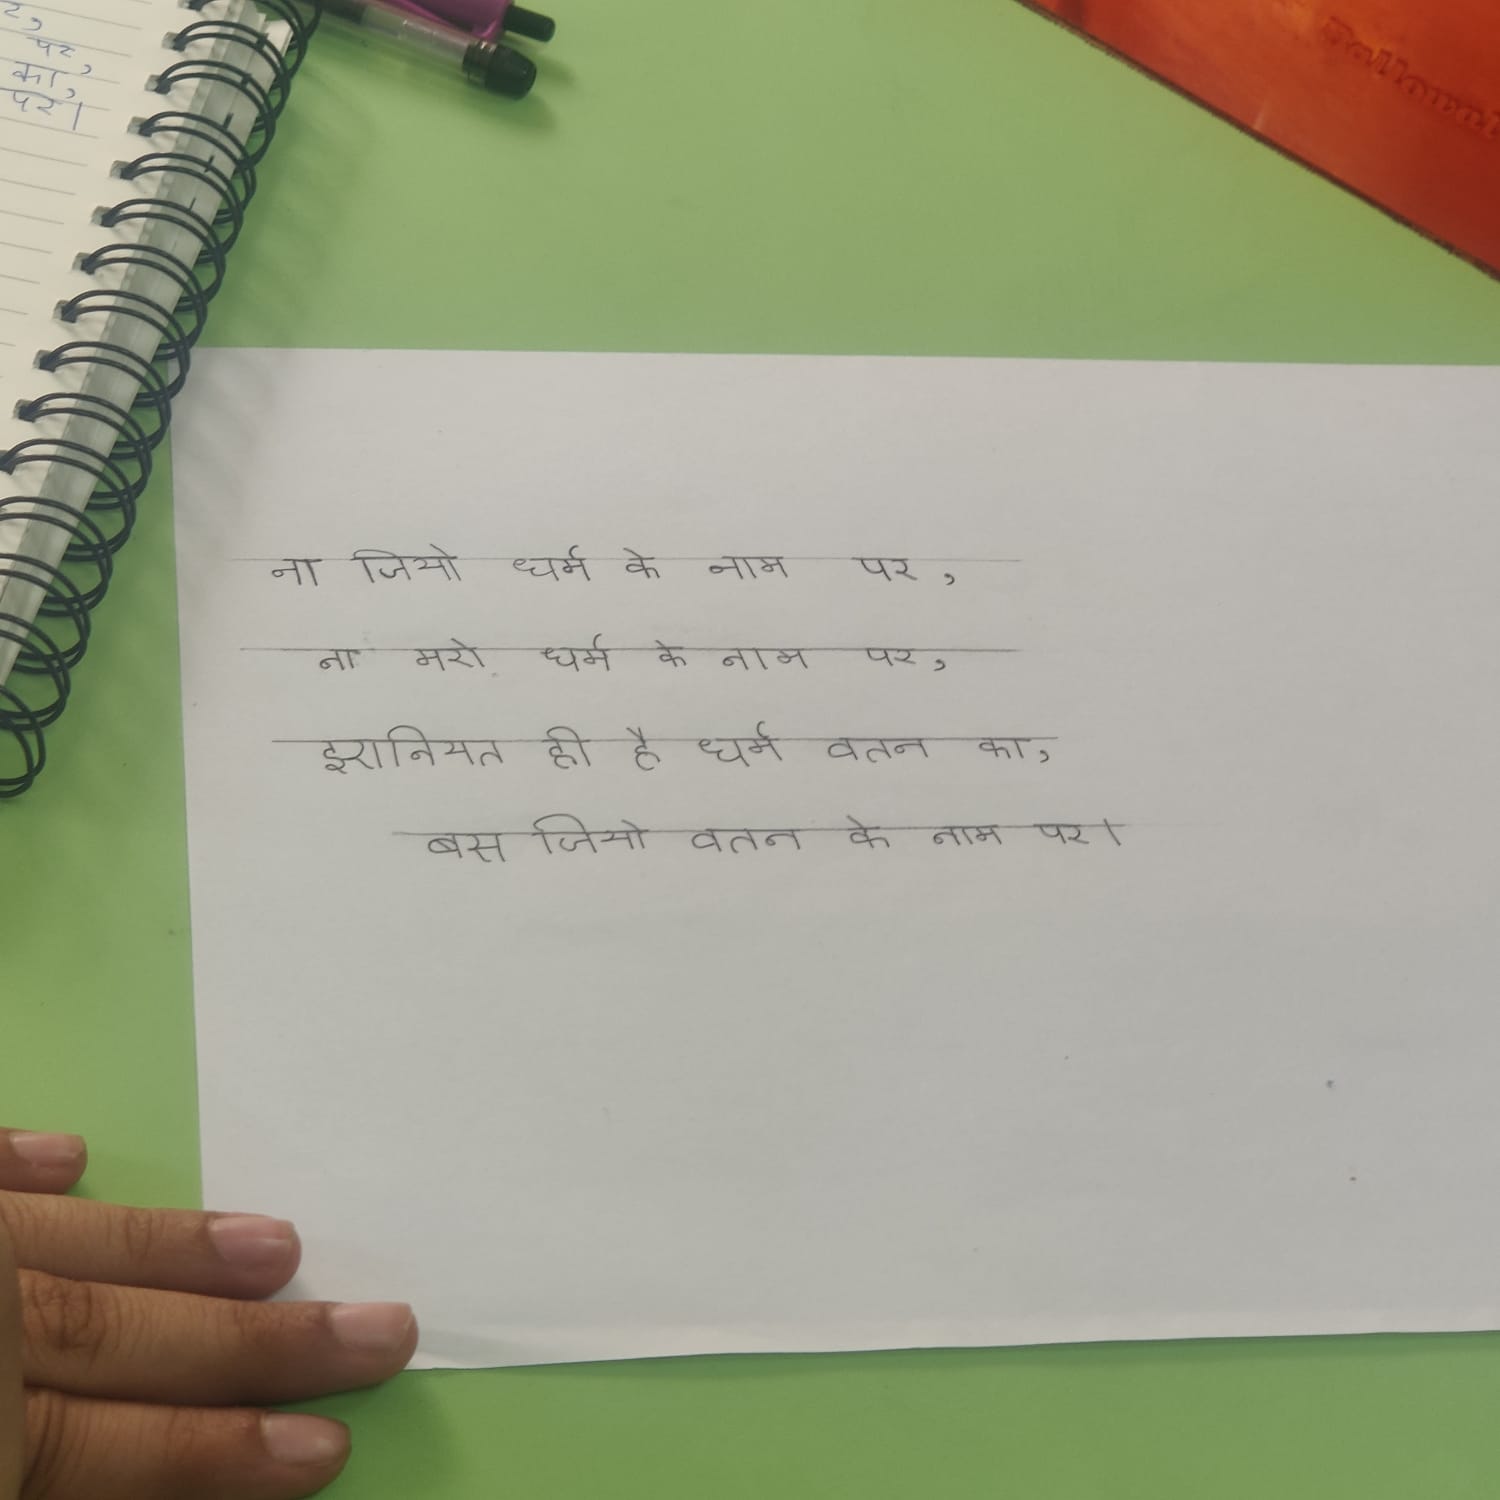 पर,
का,
पर।
ना जियो धर्म के नाम पर,
ना मरो धर्म के नाम पर,
इरानियत ही है धर्म वतन का,
बस जियो वतन के नाम पर।